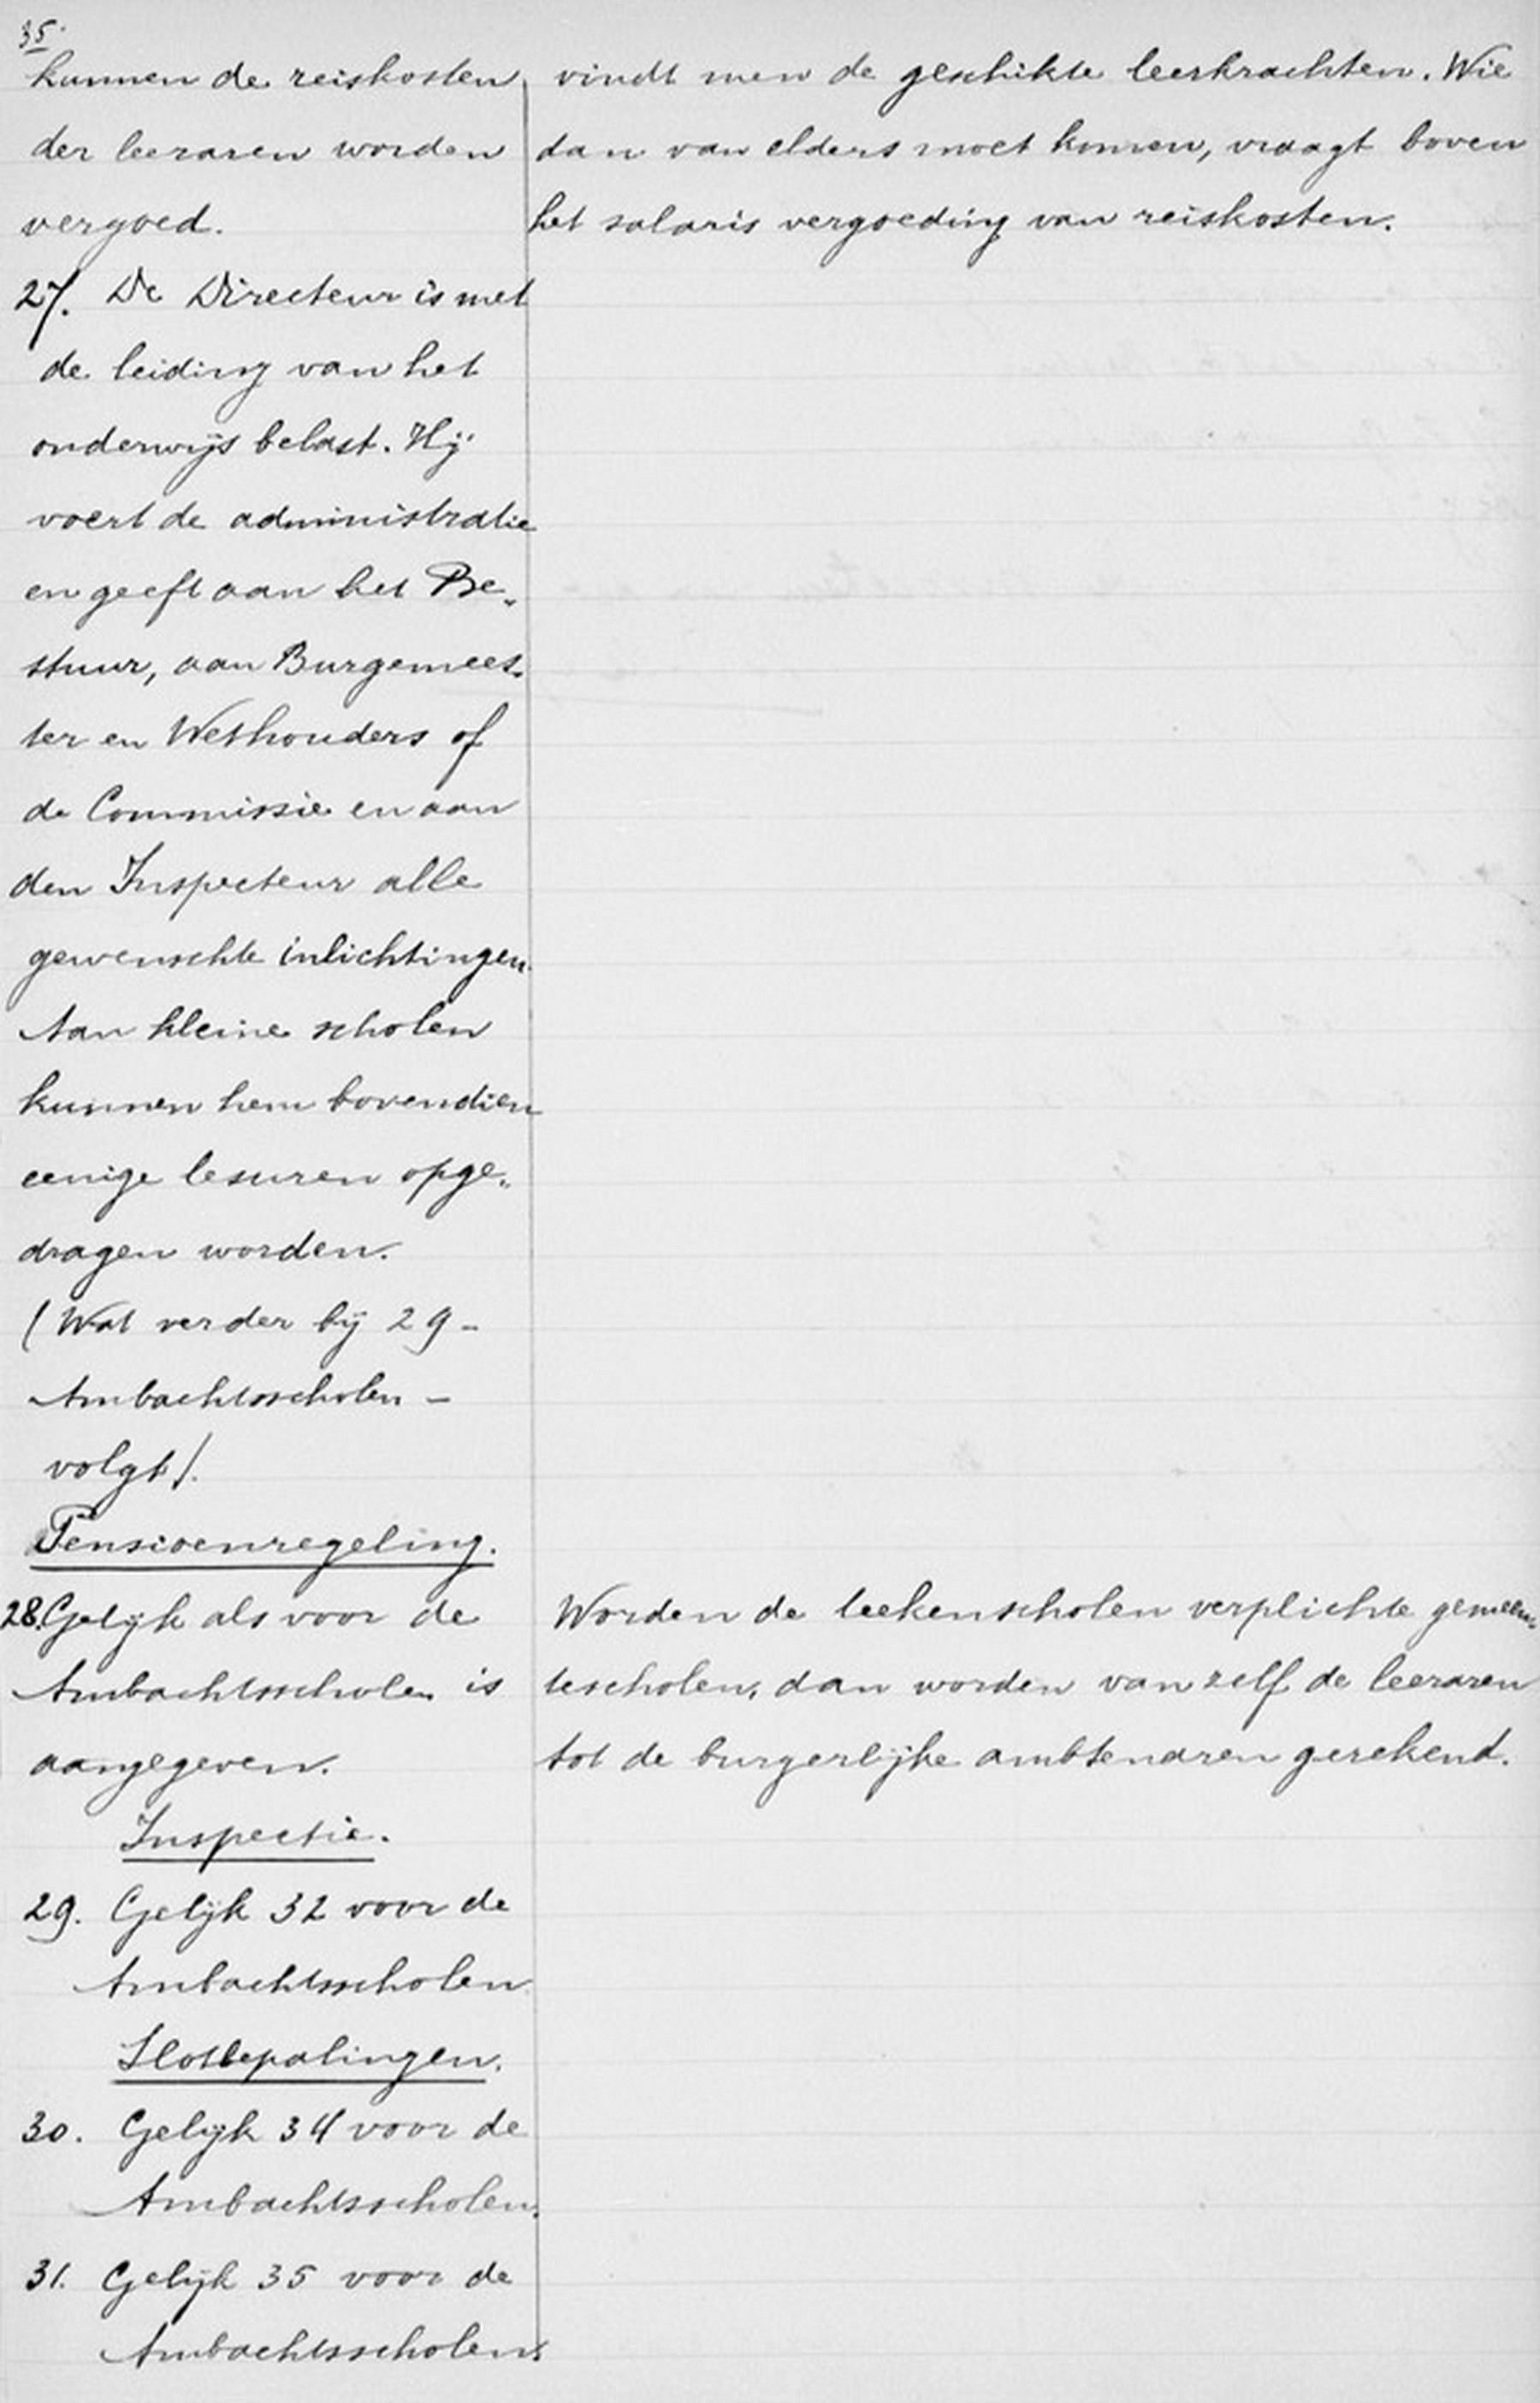 35.
kunnen de reiskosten
der leeraren worden
vergoed.
27. De Directeur is met
de leiding van het
onderwijs belast. Hij
voert de administratie
en geeft aan het Be„
stuur, aan Burgemees„
ter en Wethouders of
de Commissie en aan
den Inspecteur alle
gewenschte inlichtingen.
Aan kleine scholen
kunnen hem bovendien
eenige lesuren opge„
dragen worden.
(Wat verder bij 29 -
Ambachtsscholen -
volgt).
Pensioenregeling.
28. Gelijk als voor de
Ambachtsscholen is
aangegeven.
Inspectie.
29. Gelijk 32 voor de
Ambachtsscholen
Slotbepalingen.
30. Gelijk 34 voor de
Ambachtsscholen.
31. Gelijk 35 voor de
Ambachtsscholen.
vindt men de geschikte leerkrachten. Wie
dan van elders moet komen, vraagt boven
het salaris vergoeding van reiskosten.
Worden de teekenscholen verplichte gemeen„
tescholen, dan worden van zelf de leeraren
tot de burgerlijke ambtenaren gerekend.